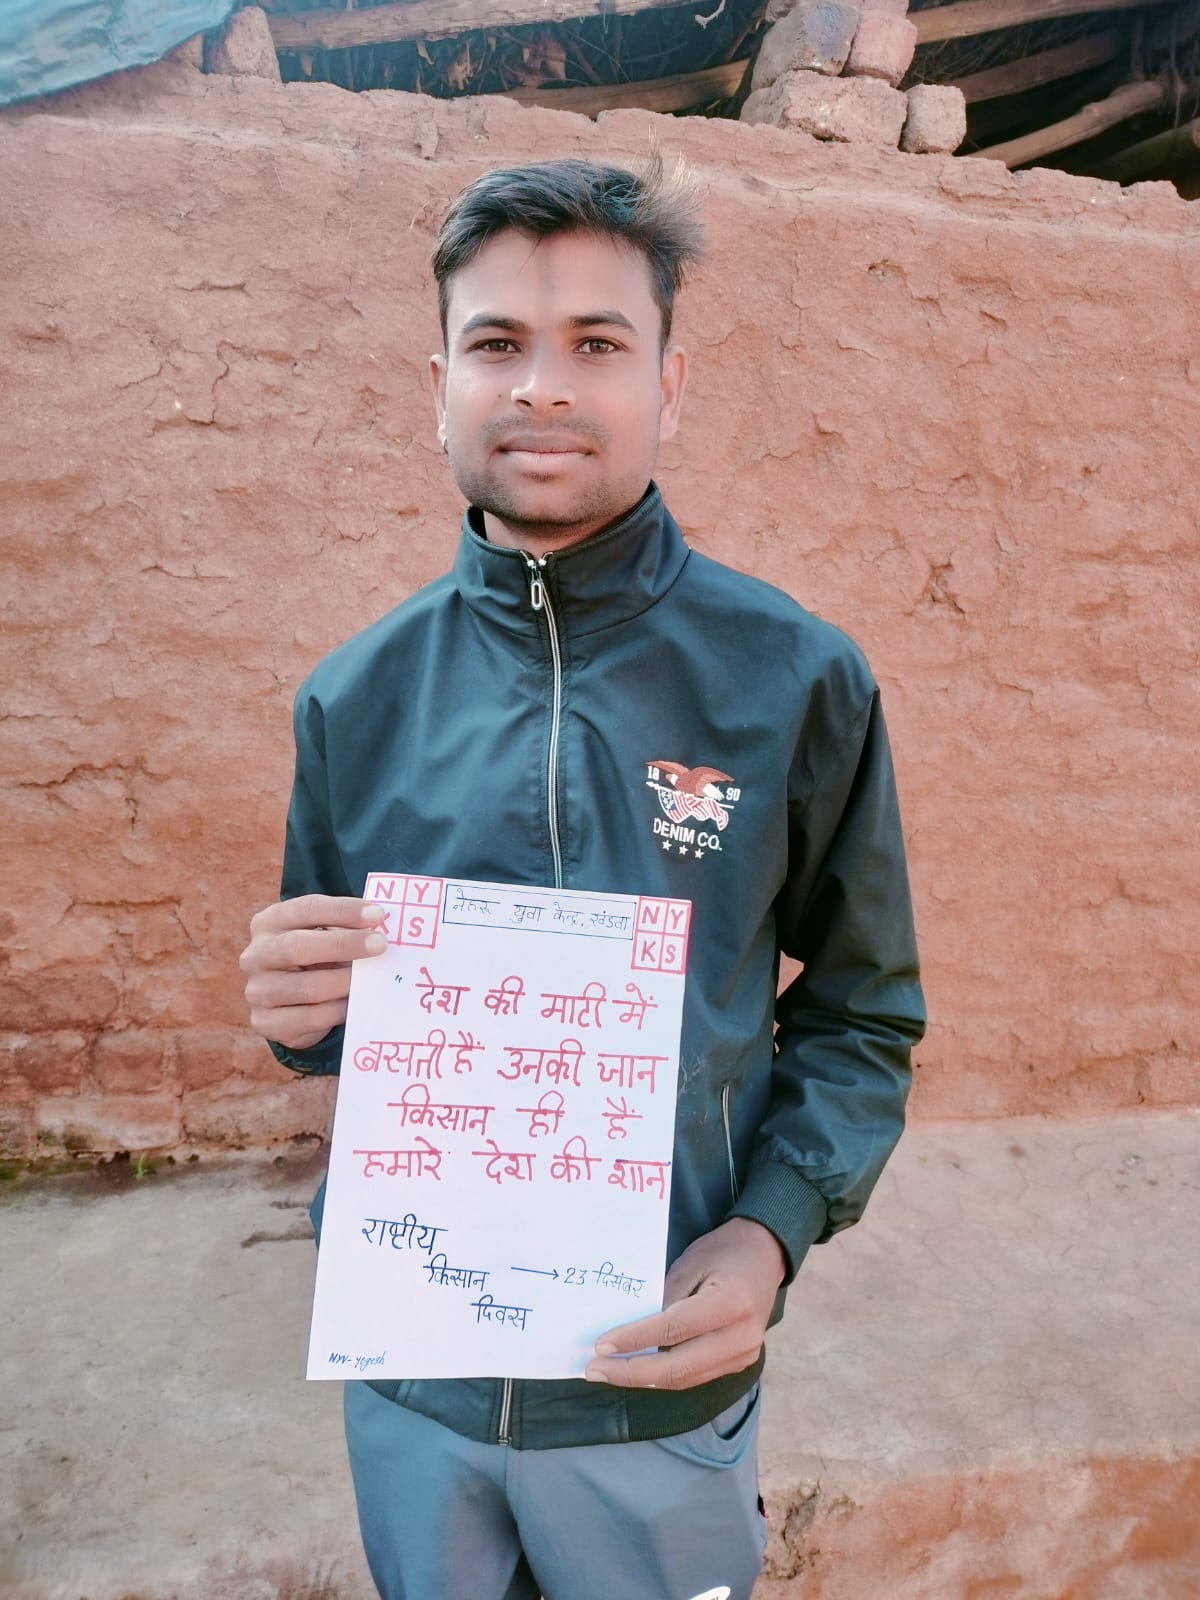 18 90
DENIM CO.
N Y नेहरू युवा केन्द्र, खंडवा N Y
K S K S
" देश की माटी में
बसती हैं उनकी जान
किसान ही हैं
हमारे देश की शान
राष्ट्रीय
किसान → 23 दिसंबर
दिवस
NYV- Yogesh